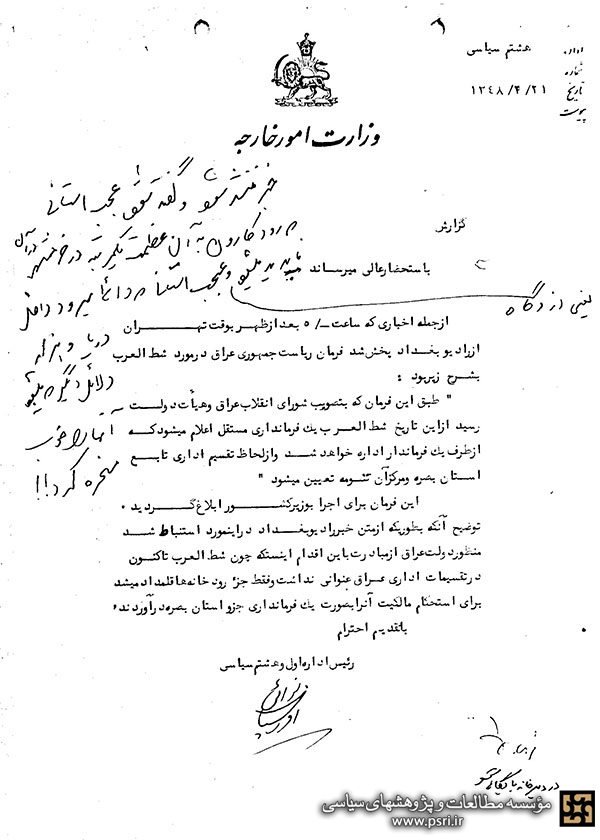 اداره هشتم سیاسی
شماره
تاریخ ۱۳۴۸/۴/۲۱
پیوست
وزارت امور خارجه
خبر منتشر شود و گفته شود عجب استانی
رود کارون به آن عظمت
گزارش
باستحضار عالی میرساند
ازجمله اخباری که ساعت ۵/۰ بعد از ظهر بوقت تهران
از رادیو بغداد پخش شد فرمان ریاست جمهوری عراق در مورد شط العرب
بشرح زیر بود :
" طبق این فرمان که بتصویب شورای انقلاب عراق و هیأت دولت
رسید از این تاریخ شط العرب یک فرمانداری مستقل اعلام میشود که
از طرف یک فرماندار اداره خواهد شد و از لحاظ تقسیم اداری تابع
استان بصره و مرکز آن تنومه تعیین میشود "
این فرمان برای اجرا بوزیر کشور ابلاغ گردید .
توضیح آنکه بطوریکه از متن خبر رادیو بغداد در اینمورد استنباط شد
منظور دولت عراق از مبادرت باین اقدام اینستکه چون شط العرب تاکنون
در تقسیمات اداری عراق عنوانی نداشت و فقط جزء رودخانه ها قلمداد میشد
برای استحکام مالکیت آنرا بصورت یک فرمانداری جزو استان بصره در آوردند .
با تقدیم احترام
رئیس اداره اول و هشتم سیاسی
دریا و
دلائل دیگر
آنها را خوب
مسخره کرد !!
مؤسسه مطالعات و پژوهشهای سیاسی
www.psri.ir